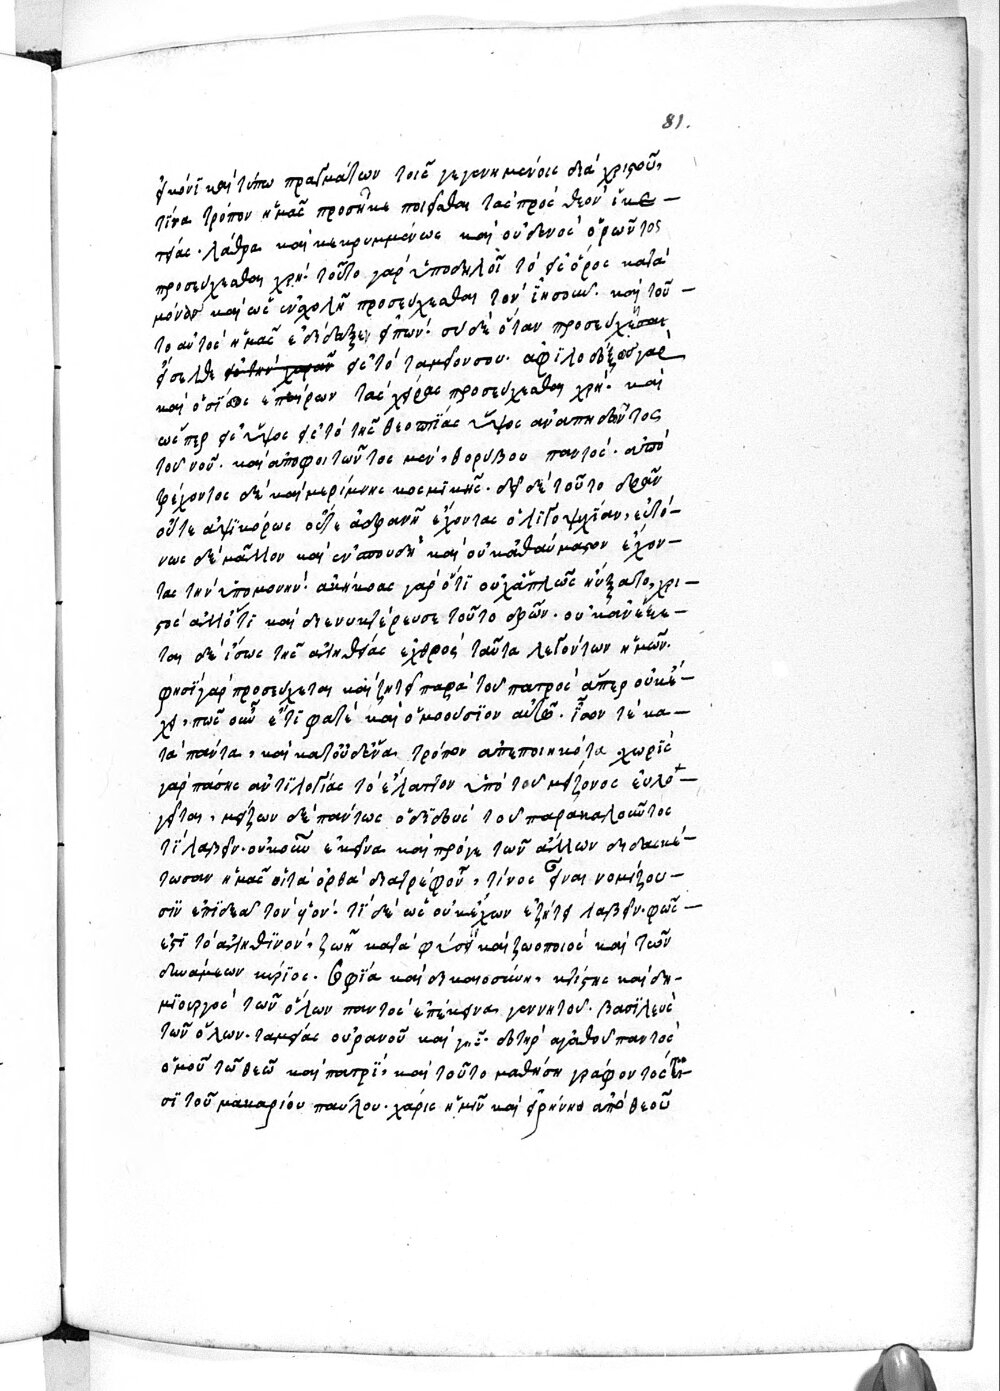 81.
εἰκόνι καὶ τύπῳ πραγμάτων τοῖς γεγενημένοις διὰ χριστοῦ,
τίνα τρόπον ἡμᾶς προσῆκε ποιεῖσθαι τὰς πρὸς θεὸν ἱκε –
τείας. λάθρα καὶ κεκρυμμένως καὶ οὐδενὸς ὁρῶντος
προσεύχεσθαι χρή. τοῦτο γὰρ ὑποδηλοῖ τὸ εἰς ὄρος κατὰ
μόνας καὶ ὡς ἐν σχολῇ προσεύχεσθαι τὸν ἰησοῦν. καὶ τοῦ –
το αὐτὸς ἡμᾶς ἐδίδαξεν εἰπών· σὺ δὲ ὅταν προσεύχῃ
εἴσελθε εἰς τὸ ταμεῖον σου. ἀφιλοδόξως γὰρ
καὶ ὁσίους ἐπαίρων τὰς χεῖρας προσεύχεσθαι χρή. καὶ
ὥσπερ εἰς ὕψος εἰς τὸ τῆς θεοπτίας ὕψος ἀναπηδῶντος
τοῦ νοῦ. καὶ ἀποφοιτῶντος μὲν, θορύβου παντὸς. ἀπο
τρέχοντος δὲ καὶ μερίμνης κοσμικῆς. δεῖ δὲ τοῦτο δρᾶν
οὔτε ἁψικόρως οὔτε ἀδρανῆ ἔχοντας ὀλιγοψυχίαν, εὐτό –
νως δὲ μᾶλλον καὶ ἐν σπουδῇ καὶ οὐκ ἀθαύμαστον ἔχον –
τας τὴν ὑπομονήν. ἀκήκοας γὰρ ὅτι οὐχ ἁπλῶς ηὔξατο χρι –
στὸς ἀλλ᾽ ὅτι καὶ διενυκτέρευσε τοῦτο δρῶν. οὐκ ἀνέξε –
ται δὲ ἴσως τῆς ἀληθείας ἐχθρὸς ταῦτα λεγόντων ἡμῶν.
φησὶ γὰρ προσεύχεται καὶ ζητεῖ παρὰ τοῦ πατρὸς ἅπερ οὐκ ἔ –
χει, πῶς οὖν ἔτι φατὲ καὶ ὁμοούσιον αὐτῷ. ἴσον τὲ κα –
τὰ πάντα, καὶ κατ᾽ οὐδένα τρόπον ἀπεοικότα χωρὶς
γὰρ πάσης ἀντιλογίας τὸ ἔλαττον ὑπὸ τοῦ μείζονος εὐλο –
γεῖται, μείζων δὲ πάντως ὁ διδοὺς τοῦ παρακαλοῦντος
τι λαβεῖν. οὐκοῦν ἐκεῖνα καὶ πρό γε τῶν ἄλλων διδασκέ –
τωσαν ἡμᾶς οἱ τὰ ὀρθὰ διαστρέφουν, τίνος εἶναι νομίζου –
σιν ἐπιδεᾶ τὸν υἱόν. τί δὲ ὡς οὐκ ἔχων ἐζήτει λαβεῖν. φῶς –
ἐστὶ τὸ ἀληθινόν, ζωὴ κατὰ φύσιν καὶ ζωοποιὸς καὶ τῶν
δυνάμεων κύριος. σοφία καὶ δικαιοσύνη, κτίστης καὶ δη –
μιουργὸς τῶν ὅλων παντὸς ἐπέκεινα γεννητοῦ. βασιλεὺς
τῶν ὅλων. ταμίας οὐρανοῦ καὶ γῆς. δοτὴρ ἀγαθοῦ παντὸς
ὁμοῦ τῷ θεῷ καὶ πατρί, καὶ τοῦτο μαθήσῃ γράφοντός
τοῦ μακαρίου παύλου. χάρις ἡμῖν καὶ εἰρήνη ἀπὸ θεοῦ